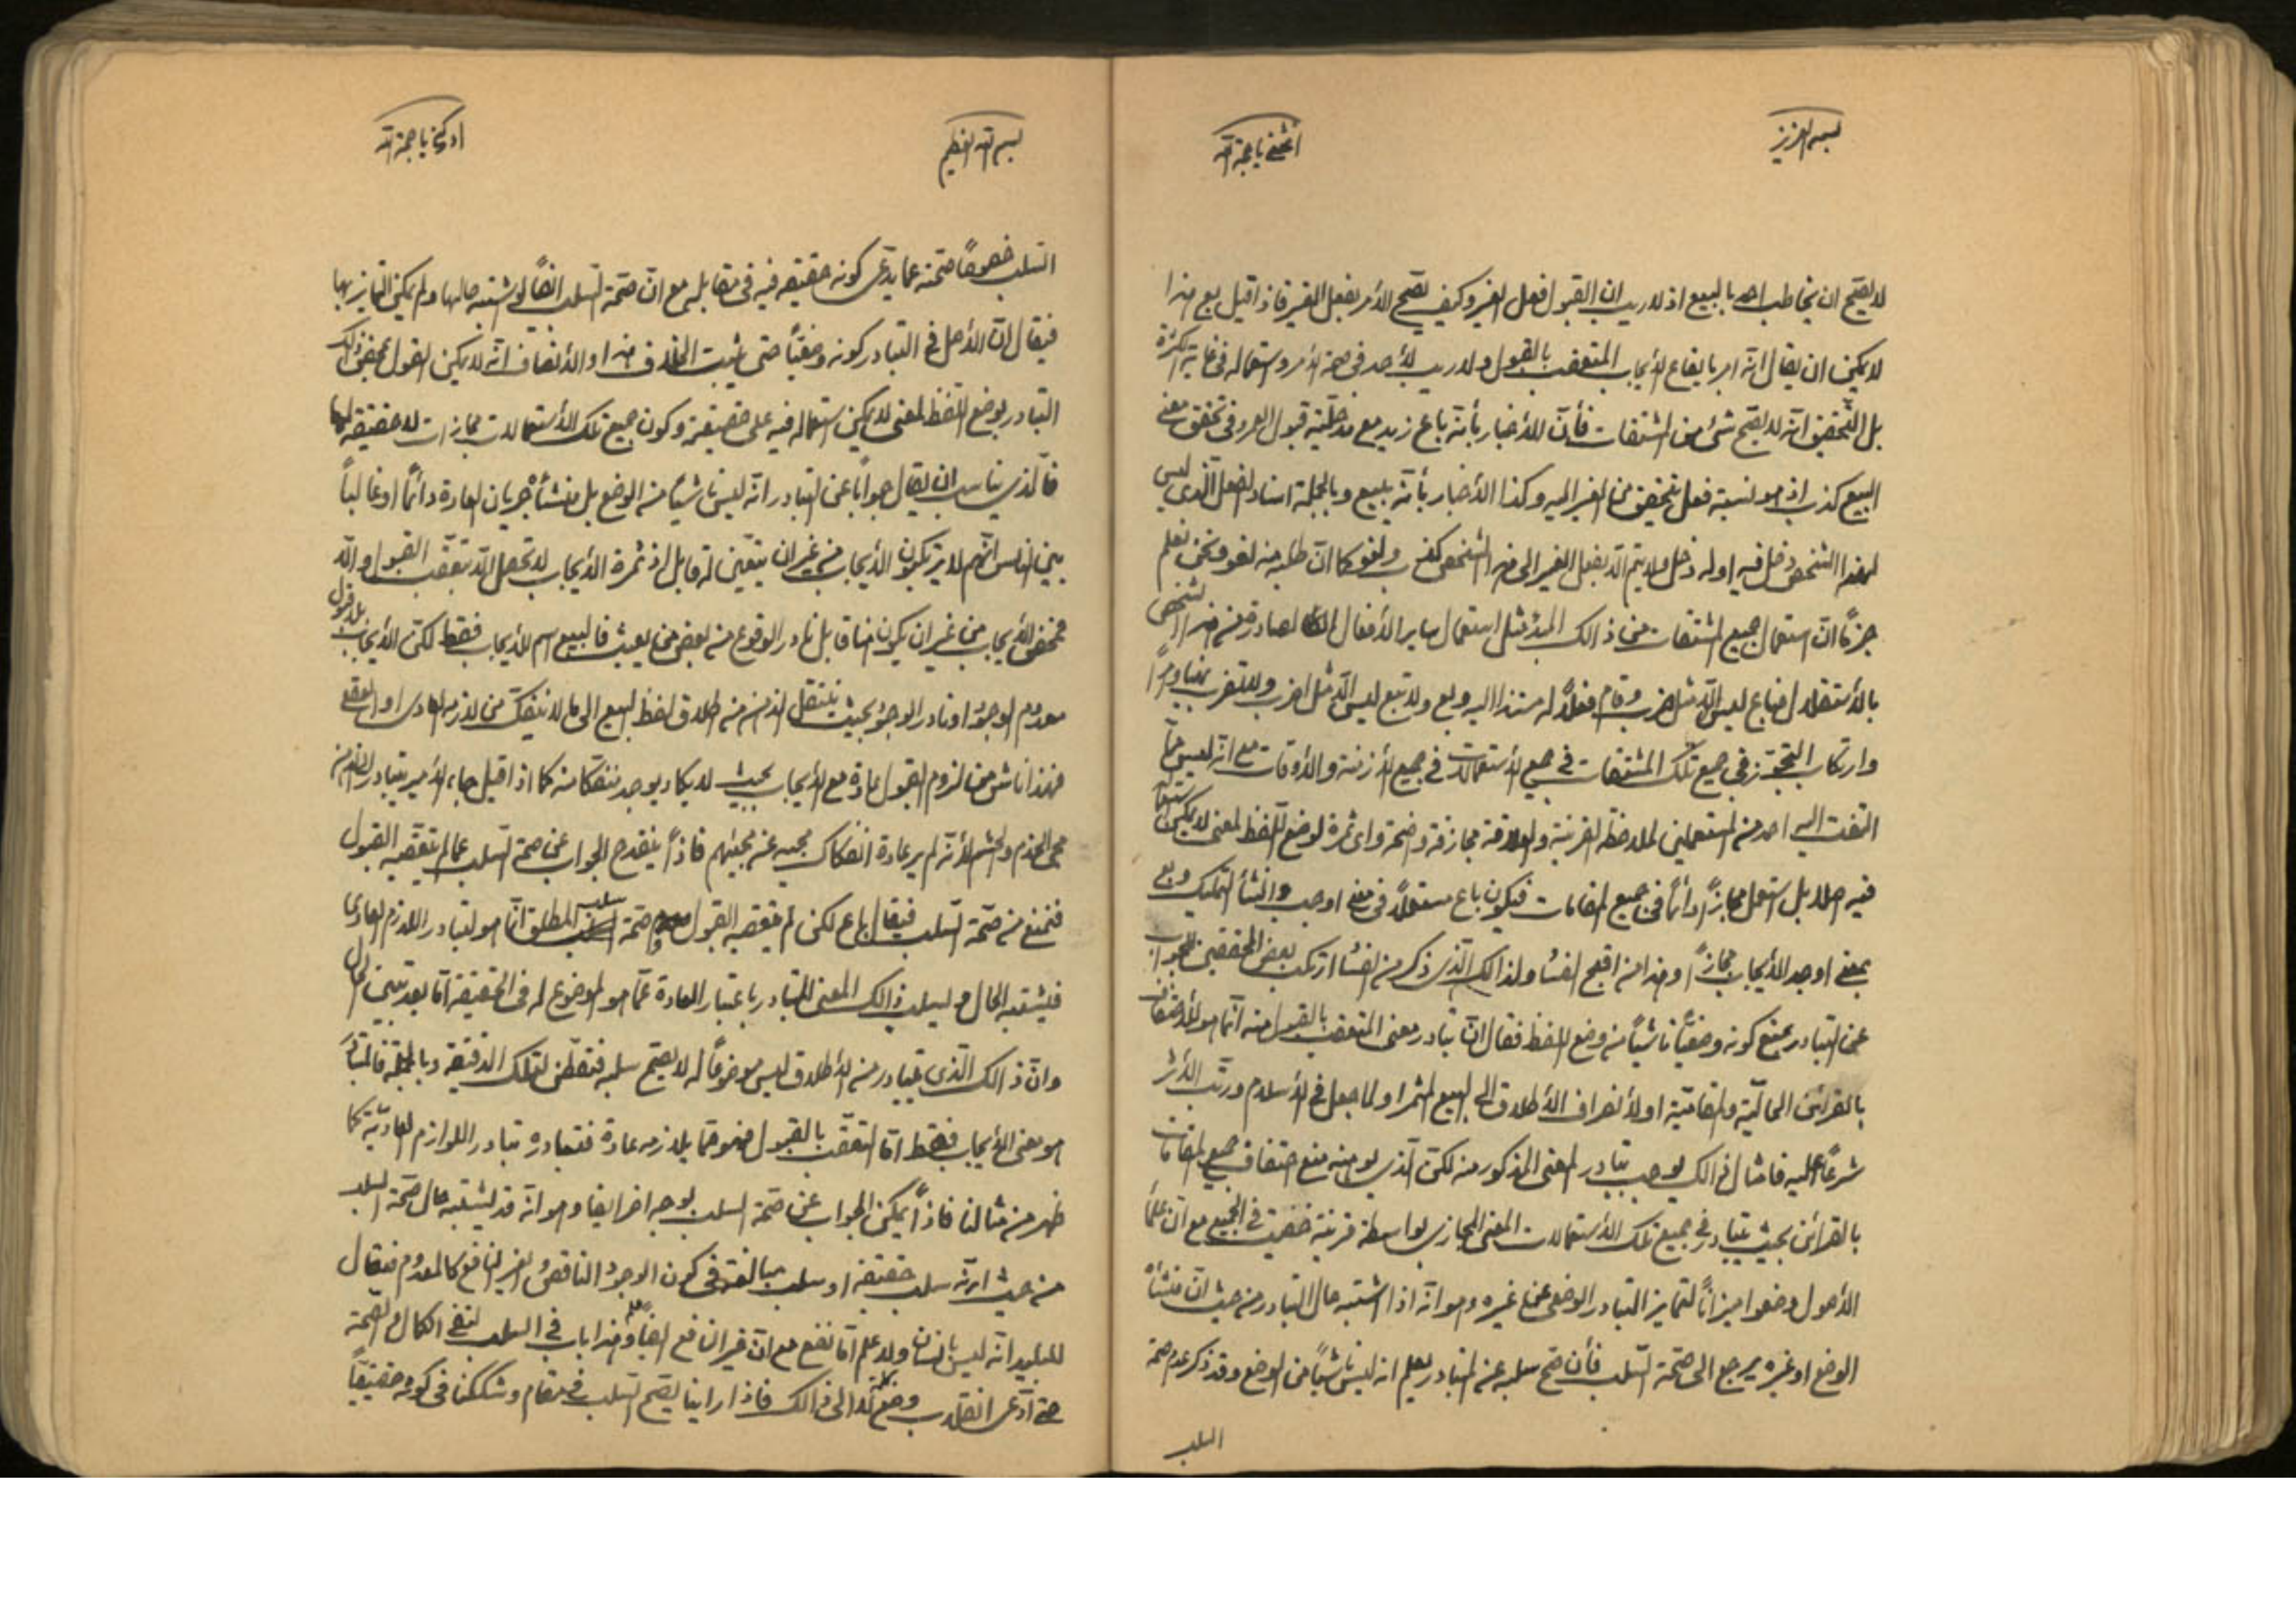 بسمه العزیز
اغثنی یا حجة الله
لا یصح ان یخاطب احد بالبیع اذ لا ریب ان القبول فعل الغیر و کیف یصح الامر بفعل الغیر فاذا قیل بع هذا
لا یمکن ان یقال انه امر بایقاع الأیجاب المتعقب بالقبول و لا ریب لأحد فی صحة الأمر و استعماله فی غایة الکثرة
بل التحقیق انه لا یصح شئ من المشتقات فأن الأخبار بأنه باع زید مع مدخلیة قبول العمرو فی تحقق معنی
البیع کذب اذ هو نسبة فعل یتحقق من الغیر الیه و کذا الأخبار بأنه یبیع و بالجملة اسناد الفعل الذی لیس
لهذا الشخص دخل فیه او له دخل و لا یتم الا بفعل الغیر الی هذا الشخص کذب و لغو کما ان طلبه منه لغو و نحن نعلم
جزماً ان استعمال جمیع المشتقات من ذالک المبدء مثل استعمال سایر الأفعال الصادرة من هذا الشخص
بالأستقلال فباع لیس الا مثل ضرب و قام فعلاً له مستندا الیه و بع و لا تبع لیس الا مثل اضرب و لا تضرب
و ارتکاب التجوز فی جمیع تلک المشتقات فی جمیع الأستعمالات فی جمیع الأزمنة و الأوقات مع انه لیس مما
التفت الیه احد من المستعملین لملاحظة القرینة و العلاقة مجازفة واضحة و ای ثمرة لوضع اللفظ لمعنی لا یمکن استعماله
فیه اصلا بل استعمل مجازاً دائماً فی جمیع المقامات فیکون باع مستعملاً فی معنی اوجب و انشأ التملیک و بع
بمعنی اوجد الأیجاب مجازاً و هذا من اقبح المفسا و لذالک الذی ذکر من المفسا ارتکب بعض المحققین الجواب
عن التبادر بمنع کونه وضعیاً ناشیاً من وضع اللفظ فقال ان تبادر معنی المتعقب بالقبول منه انما هو للأحتفاف
بالقرائن الحالیة و المقامیة او لأنصراف الأطلاق الی البیع المثمر او لما جعل فی الأسلام و رتب الأثر
شرعاً علیه فامثال ذالک یوجب تبادر المعنی المذکور منه لکن الذی یوهنه منع احتفاف جمیع المقامات
بالقرائن بحیث یتبادر فی جمیع تلک الأستعمالات المعنی المجازی بواسطة قرینة خفیت فی الجمیع مع ان علماء
الأصول وضعوا میزاناً لتمایز التبادر الوضعی عن غیره و هو انه اذا اشتبه حال التبادر من حیث ان منشأه
الوضع او غیره یرجع الی صحة السلب فأن صح سلبه عن المتبادر یعلم انه لیس ناشیاً من الوضع و قد ذکر عدم صحة
السلب
بسم الله العظیم
ادرکنی یا حجة الله
السلب خصوصاً صحته عما یدعی کونه حقیقة فیه فی مقابله مع ان صحة السلب ایضاً لو اشتبه حالها و لم یمکن التمایز بها
فیقال ان الأصل فی التبادر کونه وضعیاً حتی یثبت الخلاف هذا و الأنصاف انه لا یمکن القول بمحض ذلک
التبادر بوضع اللفظ لمعنی لا یمکن استعماله فیه علی حقیقته و کون جمیع تلک الأستعمالات مجازات لا حقیقة لها
فالذی یناسب ان یقال جواباً عن التبادر انه لیس ناشیاً من الوضع بل منشأه جریان العادة دائماً او غالباً
بین الناس انهم لا یرتکبون الأیجاب من غیر ان یتعین له قابل اذ ثمرة الأیجاب لا تحصل الا بتعقب القبول و الا
فمحض الأیجاب من غیر ان یکون هنا قابل نادر الوقوع من بعض من یعبث فالبیع اسم للأیجاب فقط لکن الأیجاب بلا قبول
معدوم الوجود او نادر الوجود بحیث ینتقل الذهن من اطلاق لفظ البیع الی ما لا ینفک من لازمه العادی او العقلی
فهذا ناش من لزوم القبول عادة مع الأیجاب بحیث لا یکاد یوجد منفکا منه کما اذا قیل جاء الأمیر یتبادر الذهن
مجی الخدم و الحشم لأنه لم یر عادة انفکاک مجیه عن مجیئهم فاذاً ینقدح الجواب عن صحة السلب عما لم یتعقبه القبول
فنمنع من صحة السلب فیقال باع لکن لم یتعقبه القبول و صحة سلب المطلق انما هو لتبادر اللازم العادی
فیشتبه الحال و یسلب ذالک المعنی المتبادر باعتبار العادة عما هو الموضوع له فی الحقیقة اما بعد تبین الحال
و ان ذالک الذی یتبادر من الأطلاق لیس موضوعاً له لا یصح سلبه فتفطن لتلک الدقیقة و بالجملة فالمتبادر
هو معنی الأیجاب فقط اما التعقب بالقبول فهو مما یلازمه عادة فتبادره تبادر اللوازم العادیة کما
ظهر من مثالنا فاذاً یمکن الجواب عن صحة السلب بوجه اخر ایضا و هو انه قد یشتبه حال صحة السلب
من حیث انه سلب حقیقة او سلب مبالغة فی کون الوجود الناقص الغیر النافع کالمعدوم فیقال
للبلید انه لیس بانسان و لا علم الا ما نفع مع ان غیر النافع ایضاً علم و هذا باب فی السلب لنفی الکمال و الصحة
حتی ادعی انقلاب وضع کلمة لا الی ذالک فاذا راینا یصح السلب فی مقام و شککنا فی کونه حقیقیاً